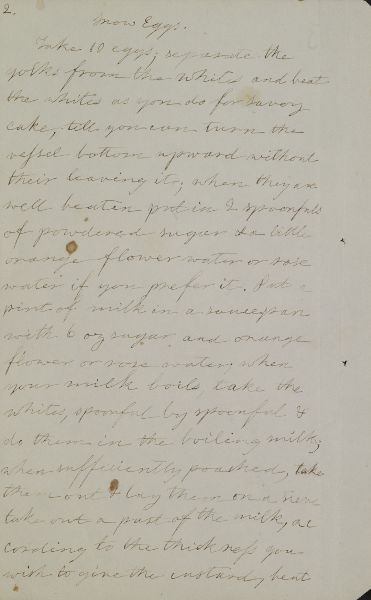 2.
Snow Eggs.
Take 10 eggs, seperate the
yolks from the whites and beat
the whites as you do for savoy
cake, till you can turn the
vessel bottom upward without
their leaving it; when they are
well beaten put in 2 spoonfuls
of powdered sugar & a little
orange flower water or rose
water if you prefer it. Put a
pint of milk in a saucepan
with 6 oz sugar and orange
flower or rose water; when
your milk boils, take the
whites, spoonful by spoonful &
do them in the boiling milk;
when sufficiently poached, take
them out & lay them on a sieve
take out a part of the milk, ac
cording to the thickness you
wish to give the custard, beat